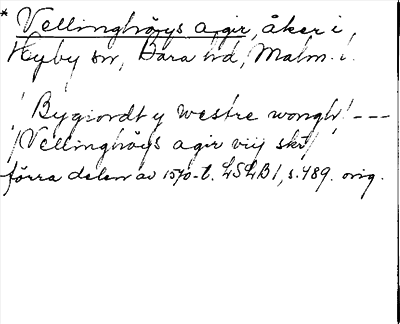 * Vellinghöys agir, åker i,
Hyby sn, Bara hd, Malm. l.
/ Bygiordt y westre wongh/ ---
/Vellinghöys agir viij skt/
förra delen av 1570-t. LSLB 1, s. 489. orig.